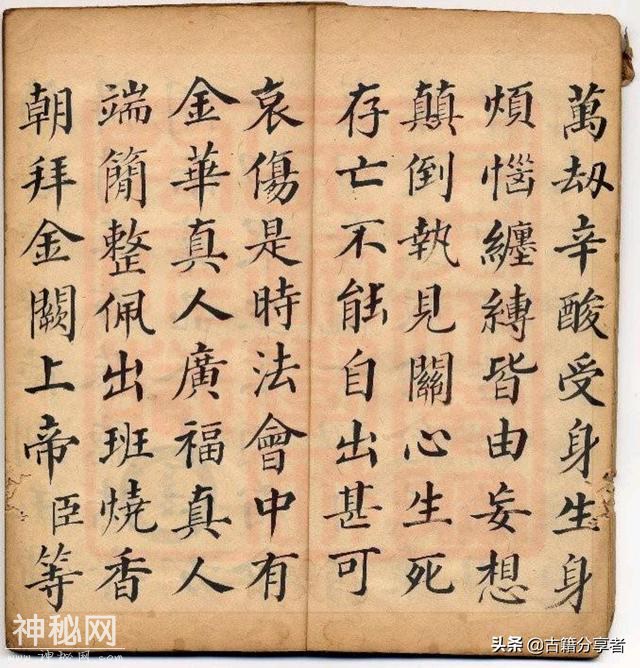 萬刼辛酸受身生身
煩惱纏縛皆由妄想
顛倒執見關心生死
存亡不能自出甚可
哀傷是時法會中有
金華真人廣福真人
端簡整佩出班燒香
朝拜金闕上帝臣等
神秘网
头条 @古籍分享者